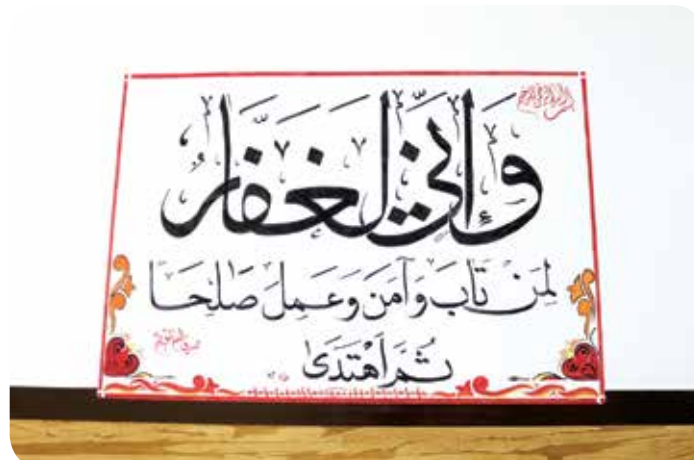 بسم الله الرحمن الرحيم
وَإِنِّي لَغَفَّارٌ
لِمَنْ تَابَ وَآمَنَ وَعَمِلَ صَالِحًا
ثُمَّ اهْتَدَىٰ